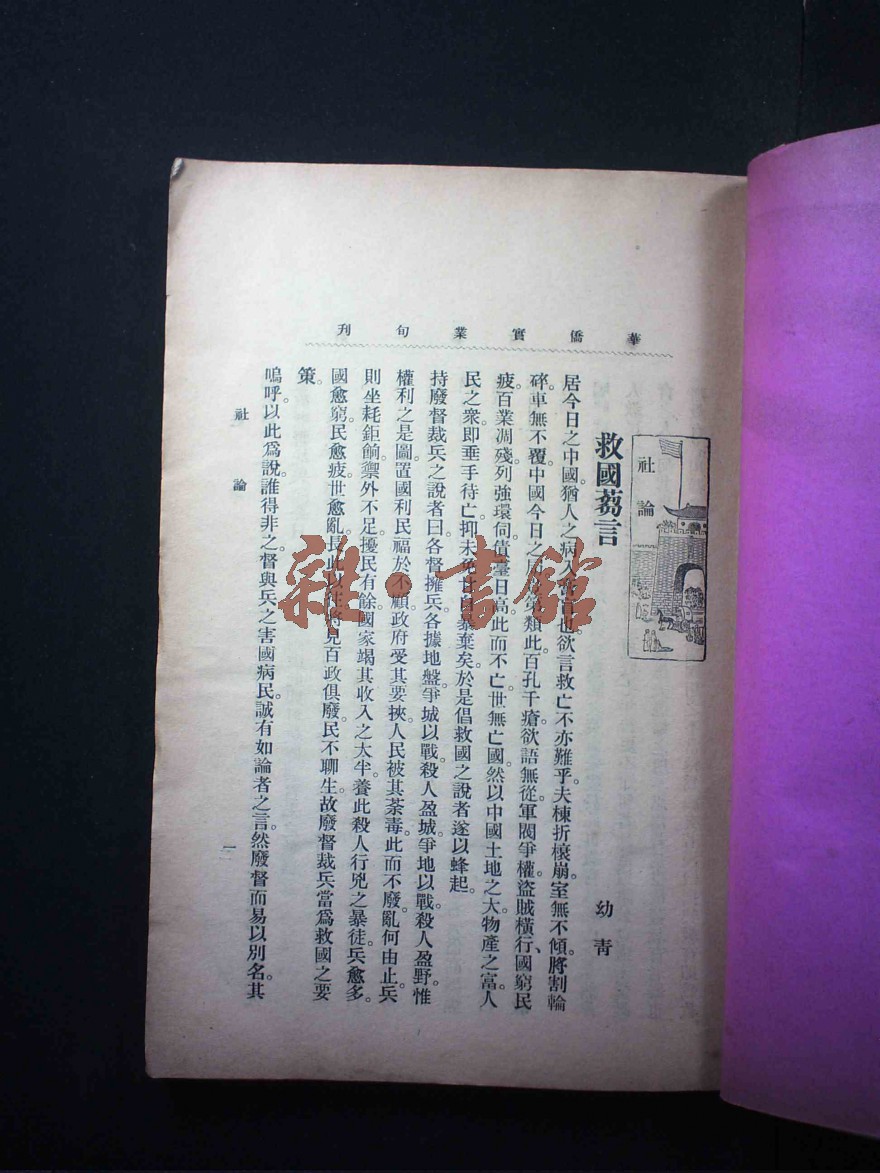 華僑實業旬刊
社論
救國蒭言
幼青
居今日之中國。猶人之病入膏肓也。欲言救亡不亦難乎。夫棟折榱崩。室無不傾。將割輪
碎。車無不覆。中國今日之局勢類此。百孔千瘡。欲語無從。軍閥爭權。盜賊橫行、國窮民
疲。百業凋殘。列強環伺。債臺日高。此而不亡。世無亡國。然以中國土地之大。物產之富。人
民之衆。即垂手待亡。抑未免甘自暴棄矣。於是倡救國之說者。遂以蜂起。
持廢督裁兵之說者曰。各督擁兵。各據地盤。爭城以戰。殺人盈城。爭地以戰。殺人盈野。惟
權利之是圖。置國利民福於不顧。政府受其要挾。人民被其荼毒。此而不廢。亂何由止。兵
則坐耗鉅餉。禦外不足。擾民有餘。國家竭其收入之大半。養此殺人行兇之暴徒。兵愈多。
國愈窮。民愈疲。世愈亂。長此以往。將見百政俱廢。民不聊生。故廢督裁兵。當爲救國之要
策。
嗚呼。以此爲說。誰得非之。督與兵之害國病民。誠有如論者之言。然廢督而易以別名。其
社論
一
雜·書館